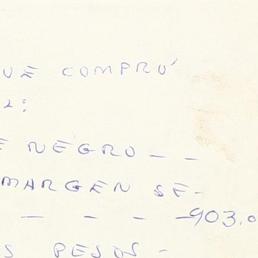 UE COMPRÓ
2:
E NEGRO — —
MARGEN SE-
— — — —903.0
S PESIS -